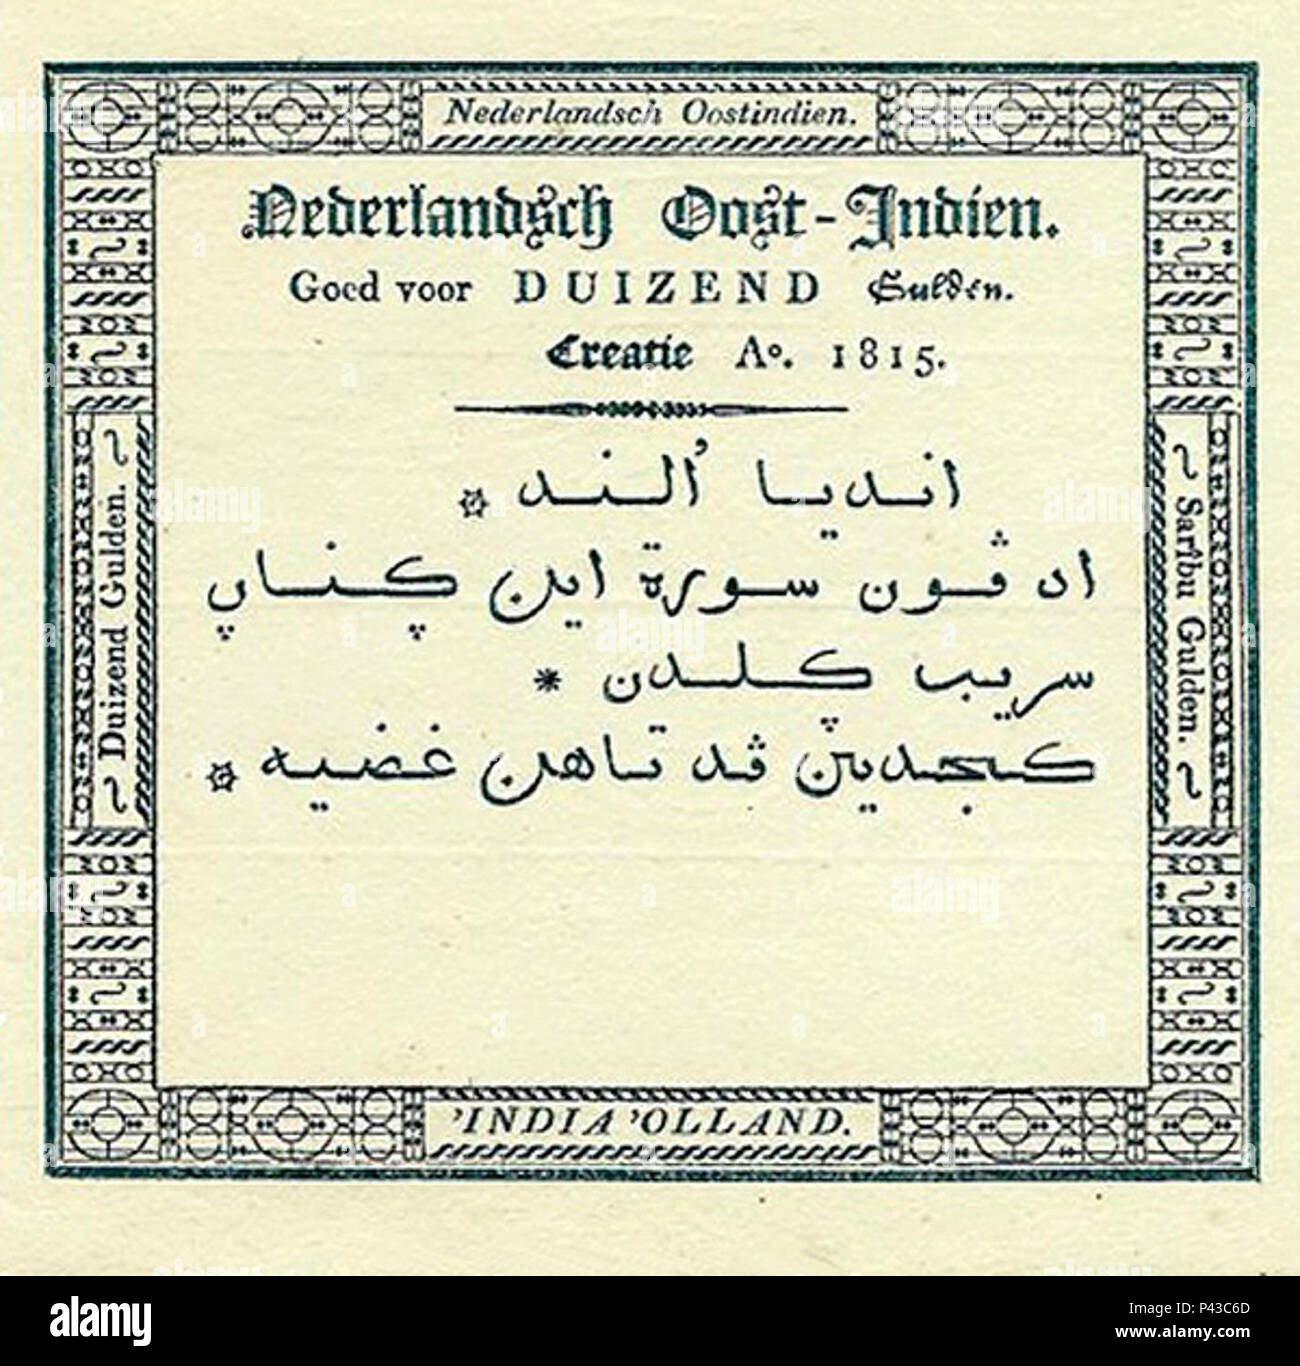 Nederlandsch Oostindien.
Nederlandsch Oost-Indien.
Goed voor DUIZEND Gulden.
Creatie Aº. 1815.
انديا ألند
اد ڤون سورة اين
سريب
ڤد تاهن غضيه
Duizend Gulden.
Saribu Gulden.
'INDIA 'OLLAND.
alamy
Image ID: P43C6D
www.alamy.com